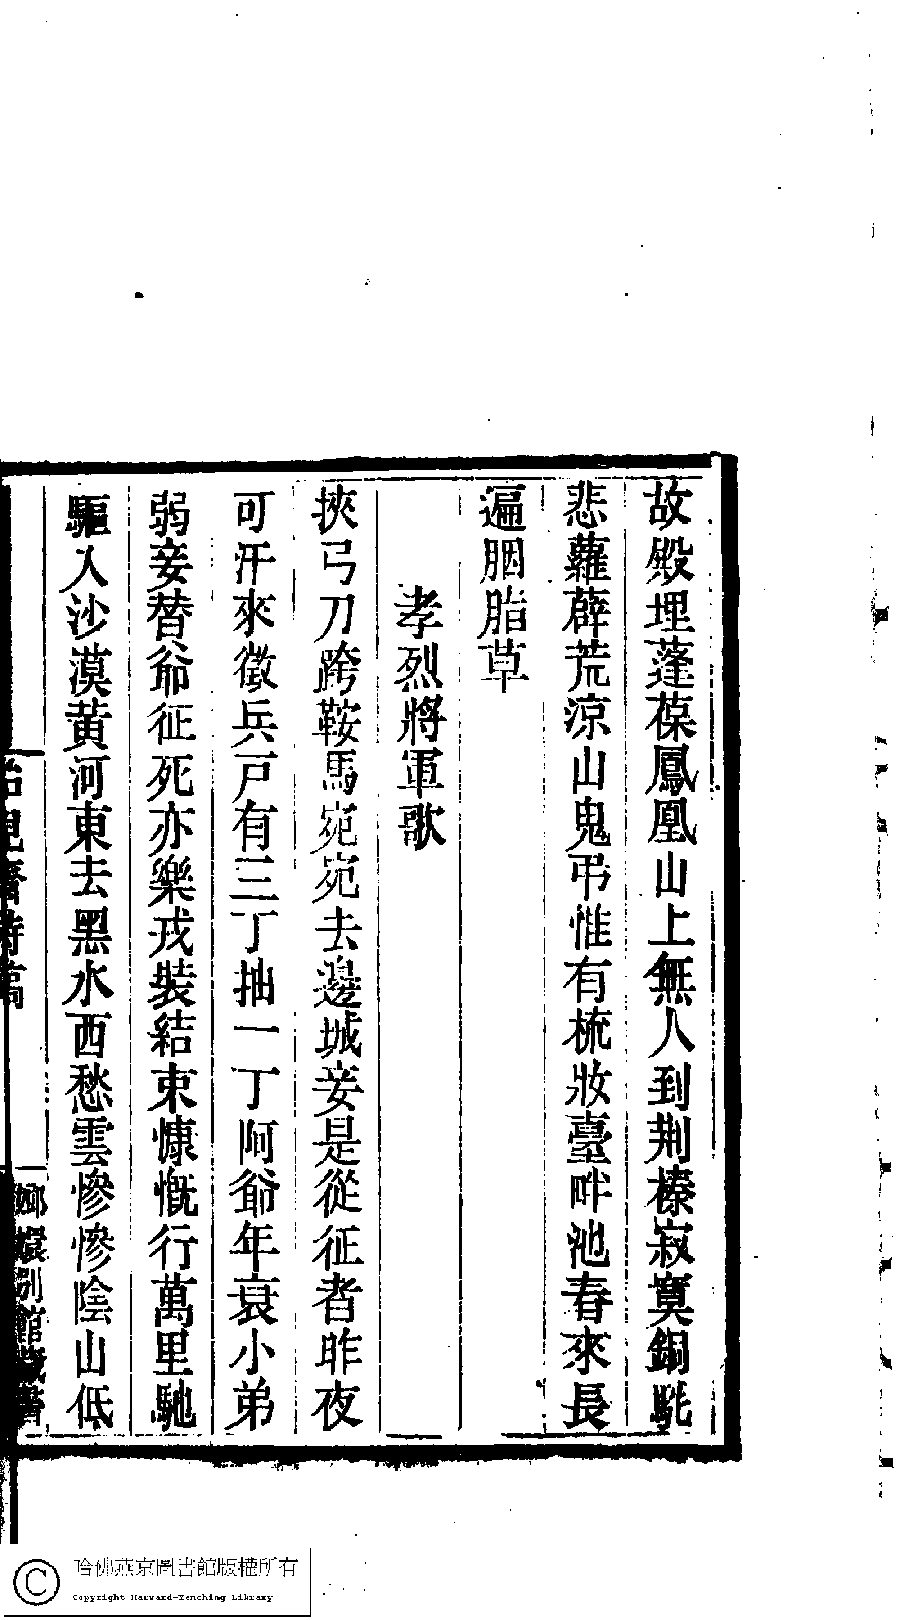 故殿埋蓬葆鳳凰山上無人到荆榛寂寞銅駝
悲蘿薜荒涼山鬼弔惟有梳妝臺畔池春來長
遍胭脂草
孝烈將軍歌
挾弓刀跨鞍馬宛宛去邊城妾是從征者昨夜
可汗來徵兵戸有三丁抽一丁阿爺年衰小弟
弱妾替爺征死亦樂戎裝結束慷慨行萬里馳
驅入沙漠黃河東去黑水西愁雲慘慘陰山低
嫏嬛別館藏書
哈佛燕京圖書館版權所有
Copyright Harvard-Yenching Library